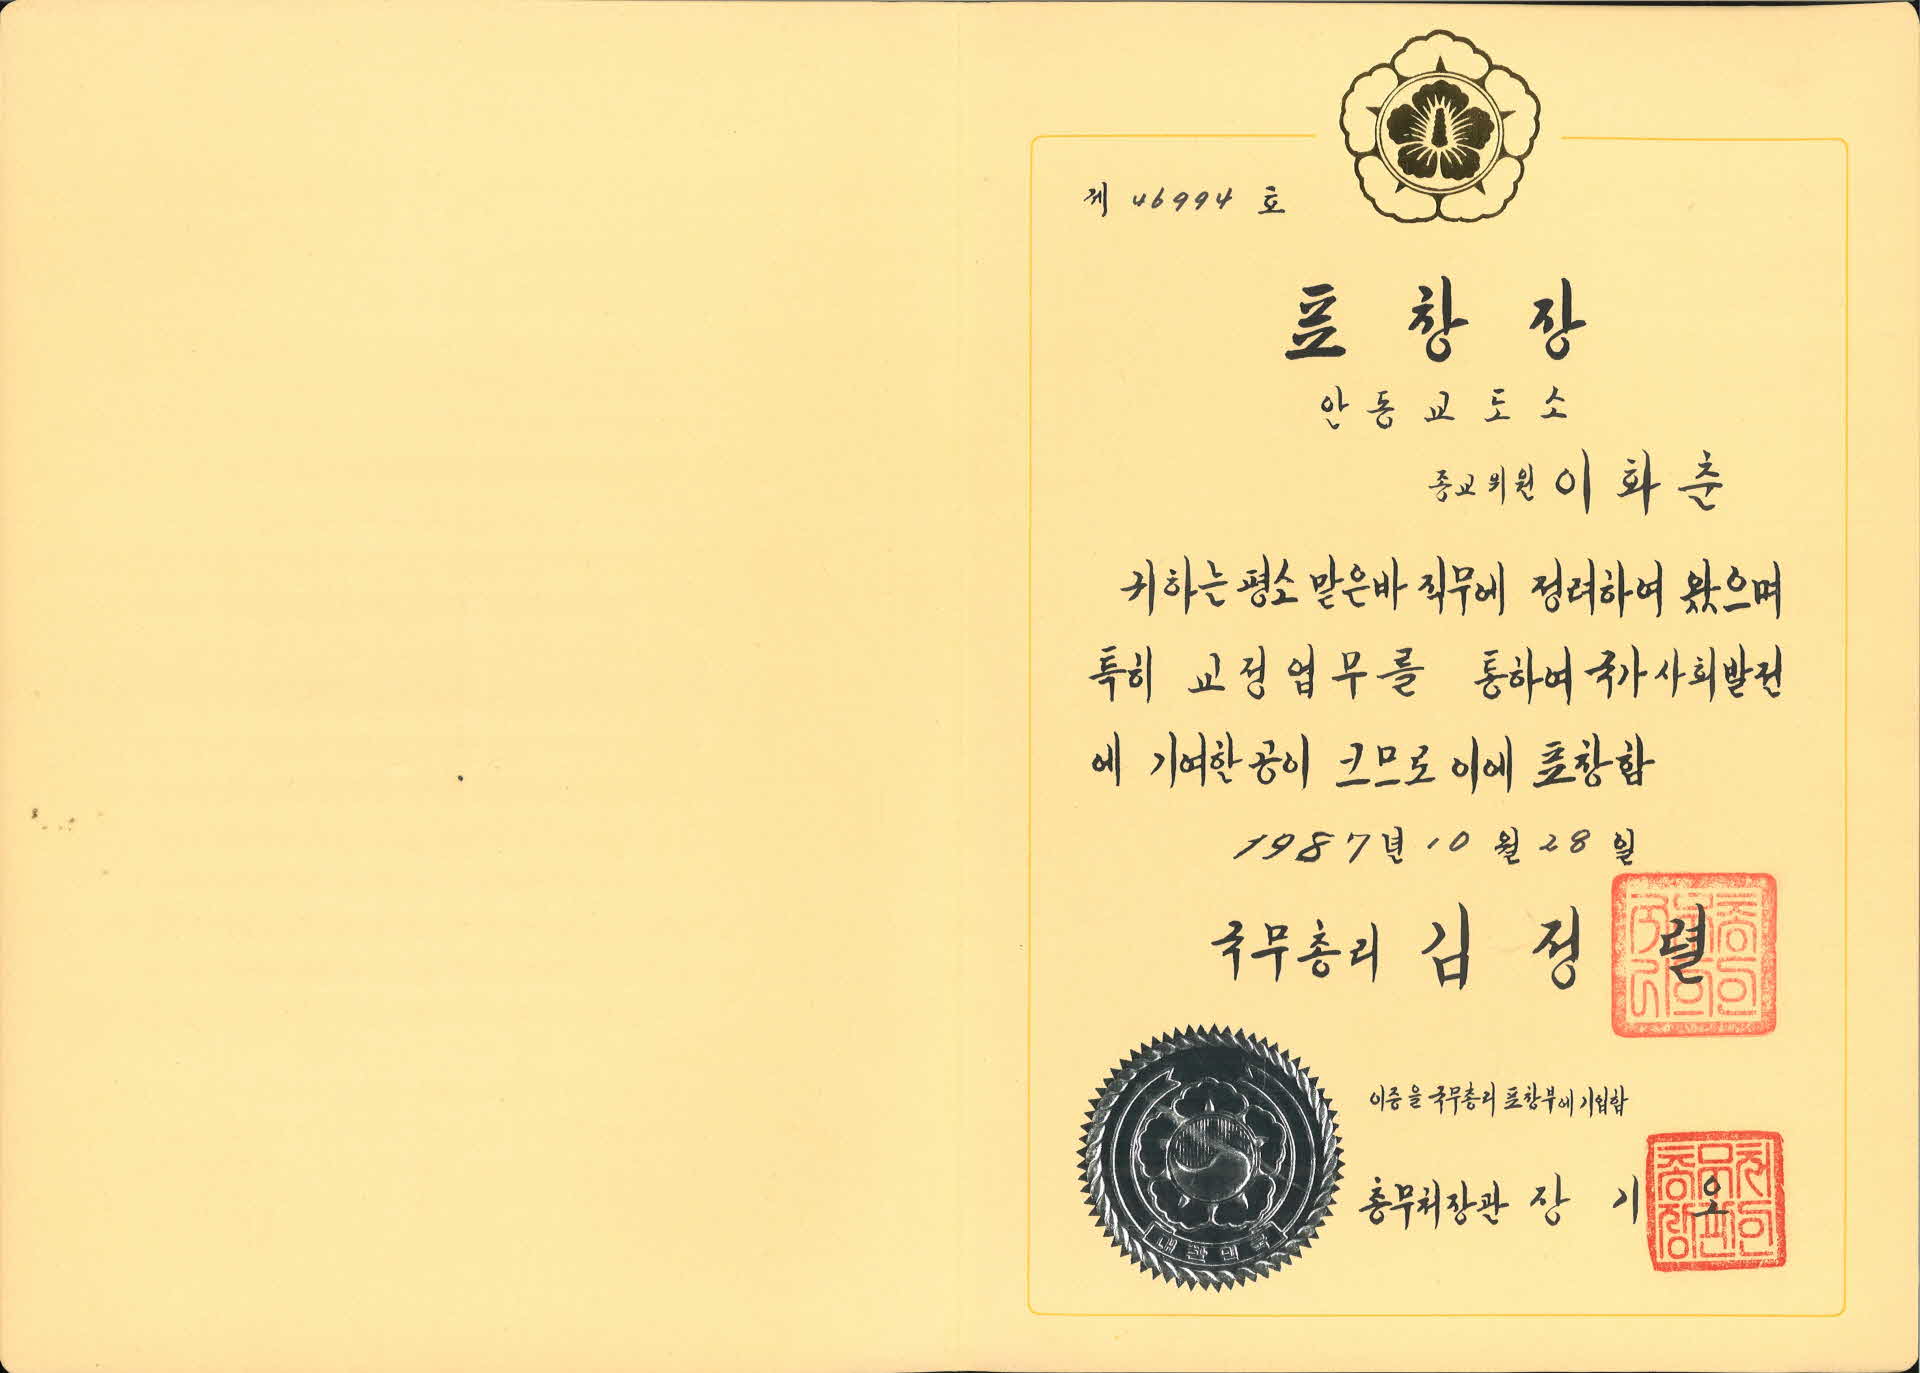 제 46994 호
표창장
안동교도소
종교위원 이화춘
귀하는 평소 맡은바 직무에 정려하여 왔으며
특히 교정업무를 통하여 국가사회발전
에 기여한 공이 크므로 이에 표창함
1987년 10월 28일
국무총리 김정렬
이증을 국무총리 표창부에 기입함
총무처장관 장기오
대한민국